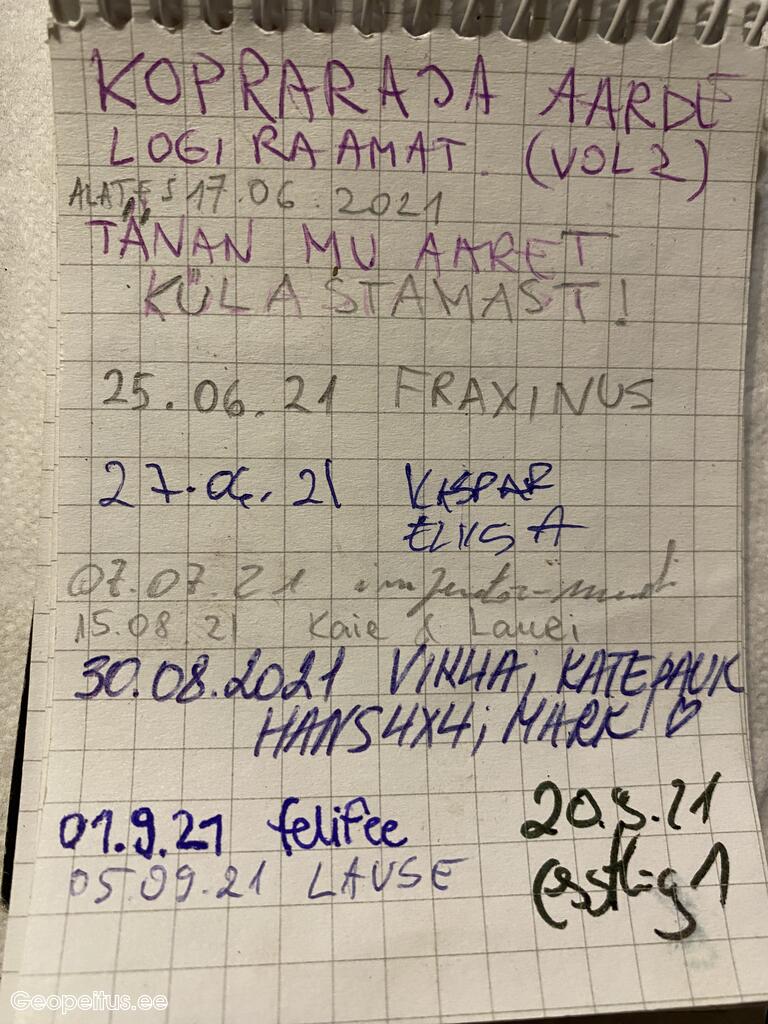 KOPRARAJA AARDE
LOGIRAAMAT. (VOL 2)
ALATES 17.06.2021
TÄNAN MU AARET
KÜLASTAMAST!
25.06.21 FRAXINUS
27.06.21 KASPAR
ELIISA
07.07.21
15.08.21 Kaie & Lauri
30.08.2021 VIHHA; KATEPAUK
HANS4X4; MARK ♡
01.9.21 felifee
20.9.21
05.09.21 LAUSE
Geopeitus.ee